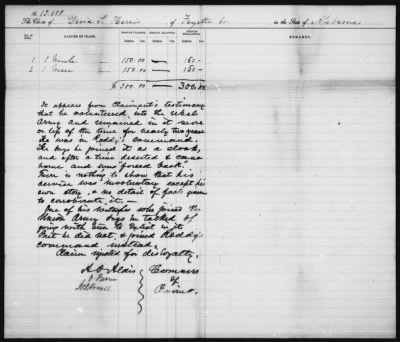 No 13,588
The Claim of David L. Harris of Fayette Co. in the State of Alabama
No. NATURE OF CLAIM. AMOUNT CLAIMED. AMOUNT ALLOWED. AMOUNT DISALLOWED. REMARKS.
Dolls. Cts. Dolls. Cts. Dolls. Cts.
1 1 Mule 150.00 — 150 —
2 1 Mare 150.00 — 150 —
$300.00 300.00
It appears from Claimant's testimony
that he volunteered into the rebel
Army and remained in it more
or less of the time for nearly two years
He was in Roddy's command.
He says he joined it as a cloak,
and after a time deserted & came
home and was "forced back."
There is nothing to show that his
service was involuntary except his
own story, & no detail of fact given
to corroborate it, —
One of his witnesses who joined the
Union Army says he talked of
going with him to enlist in it
But he did not, & joined Roddy's
command instead.
Claim rejected for disloyalty.
A O Aldis
O. Ferriss
J B Howell
Commrs
of
Claims.